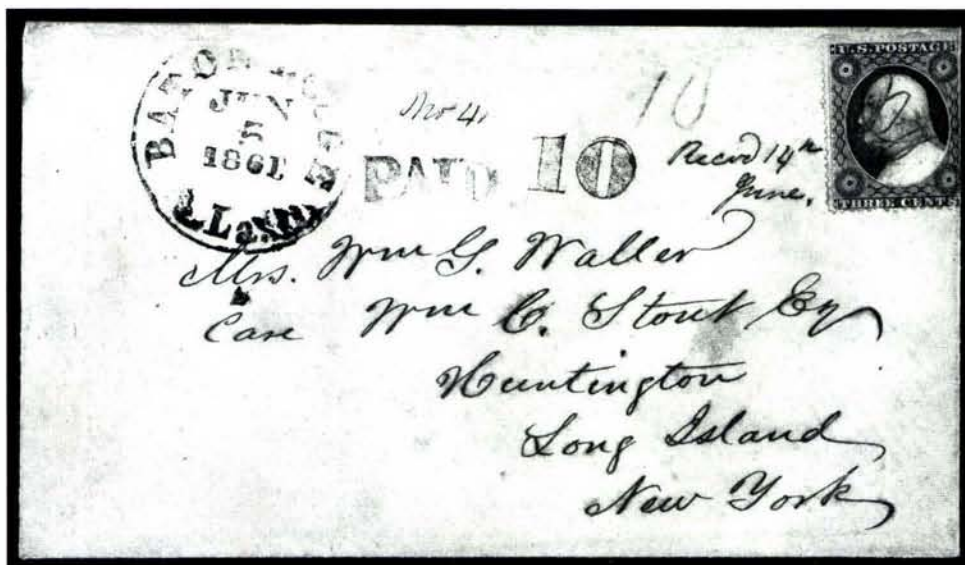 BATON ROUGE
JUN
5
1861
La.
No 4.
PAID 10
10
Recvd 14th
June.
U.S. POSTAGE
THREE CENTS
Mrs. Wm G. Waller
Care Wm C. Stout Esq
Huntington
Long Island
New York